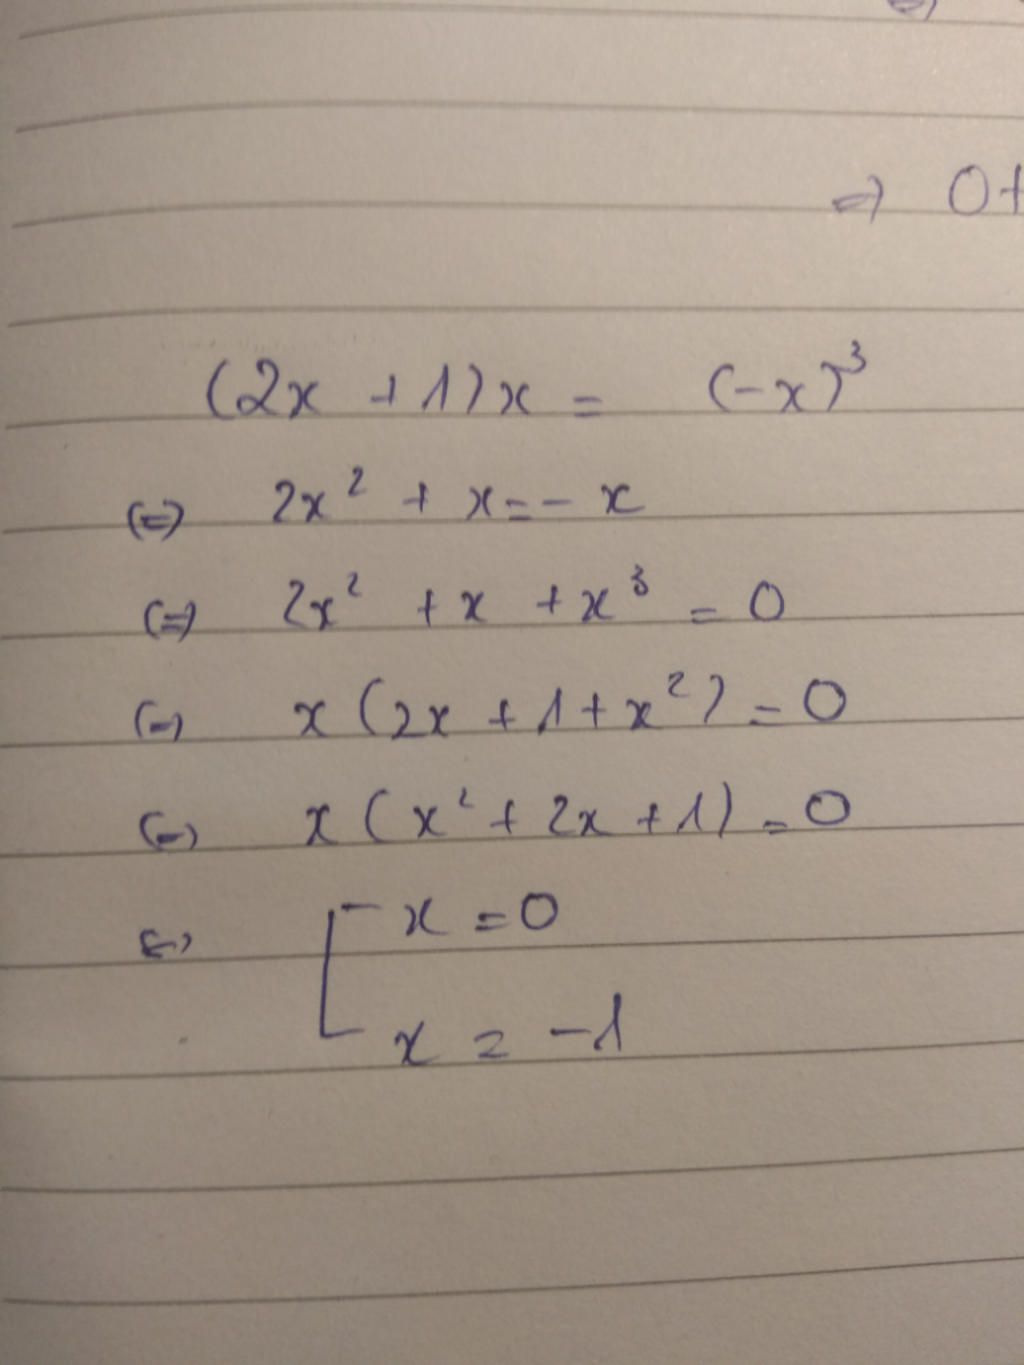 ⇒ 0+
(2x + 1)x = (-x)³
(=) 2x² + x = - x
(=) 2x² + x + x³ = 0
(-) x(2x + 1 + x²) = 0
(-) x(x² + 2x + 1) = 0
x = 0
x = -1